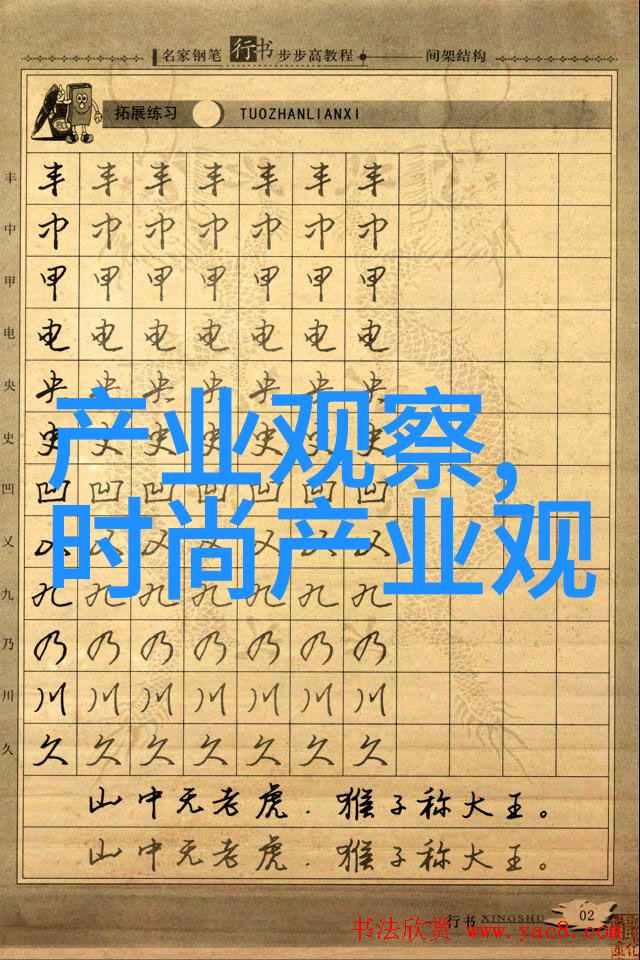 名家钢笔行书步步高教程 间架结构
拓展练习 TUOZHANLIANXI
丰 丰 丰 丰 丰 丰 丰 丰
中 中 中 中 中 中 中 中
甲 甲 甲 甲 甲 甲 甲 甲
电 电 电 电 电 电 电 电
央 央 央 央 央 央 央 央
史 史 史 史 史 史 史 史
凹 凹 凹 凹 凹 凹 凹 凹
义 义 义 义 义 义 义 义
九 九 九 九 九 九 九 九
乃 乃 乃 乃 乃 乃 乃 乃
川 川 川 川 川 川 川 川
久 久 久 久 久 久 久 久
产业观察，
时尚产业观
山中无老虎．猴子称大王。
山中无老虎．猴子称大王。
行书 XINGSHU 02
书法欣赏 www.yac8.com